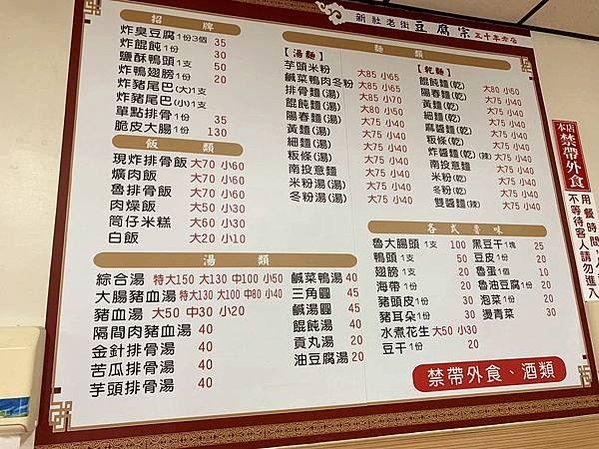 新社老街 豆腐宗 五十年老店
招牌
炸臭豆腐1份3個 35
炸餛飩1份 30
鹽酥鴨頭1支 50
炸鴨翅膀1份 20
炸豬尾巴(大)1支
炸豬尾巴(小)1支
單點排骨1份 35
脆皮大腸1份 130
飯類
現炸排骨飯 大70 小60
爌肉飯 大70 小60
魯排骨飯 大70 小60
肉燥飯 大50 小30
筒仔米糕 大60 小30
白飯 大20 小10
麵類
【湯麵】
芋頭米粉 大85 小65
鹹菜鴨肉冬粉 大85 小65
排骨麵(湯) 大85 小70
餛飩麵(湯) 大80 小50
陽春麵(湯) 大75 小40
黃麵(湯) 大75 小40
細麵(湯) 大75 小40
粄條(湯) 大75 小40
南投意麵 大75 小40
米粉湯(湯) 大75 小40
冬粉湯(湯) 大75 小40
【乾麵】
餛飩麵(乾) 大80 小50
陽春麵(乾) 大75 小40
黃麵(乾) 大75 小40
細麵(乾) 大75 小40
麻醬麵(乾) 大75 小40
粄條(乾) 大75 小40
炸醬麵(乾)(辣) 大75 小40
南投意麵 大75 小40
米粉(乾) 大75 小40
冬粉(乾) 大75 小40
雙醬麵(辣) 大75 小40
湯類
綜合湯 特大150 大130 中100 小50
大腸豬血湯 特大130 大100 中80 小40
豬血湯 大50 中30 小20
隔間肉豬血湯 40
金針排骨湯 40
苦瓜排骨湯 40
芋頭排骨湯 40
鹹菜鴨湯 40
三角圓 45
鹹湯圓 45
餛飩湯 40
貢丸湯 20
油豆腐湯 20
各式魯味
魯大腸頭1支 100
鴨頭1支 50
翅膀1支 20
海帶1份 20
豬頭皮1份 30
豬耳朵1份 30
水煮花生 大50 小30
豆干1份 20
黑豆干1塊 25
豆皮1份 20
魯蛋1個 10
魯油豆腐1份 20
泡菜1份 20
燙青菜 30
禁帶外食、酒類
本店
禁帶外食
用餐時間
不等待客人請勿進入